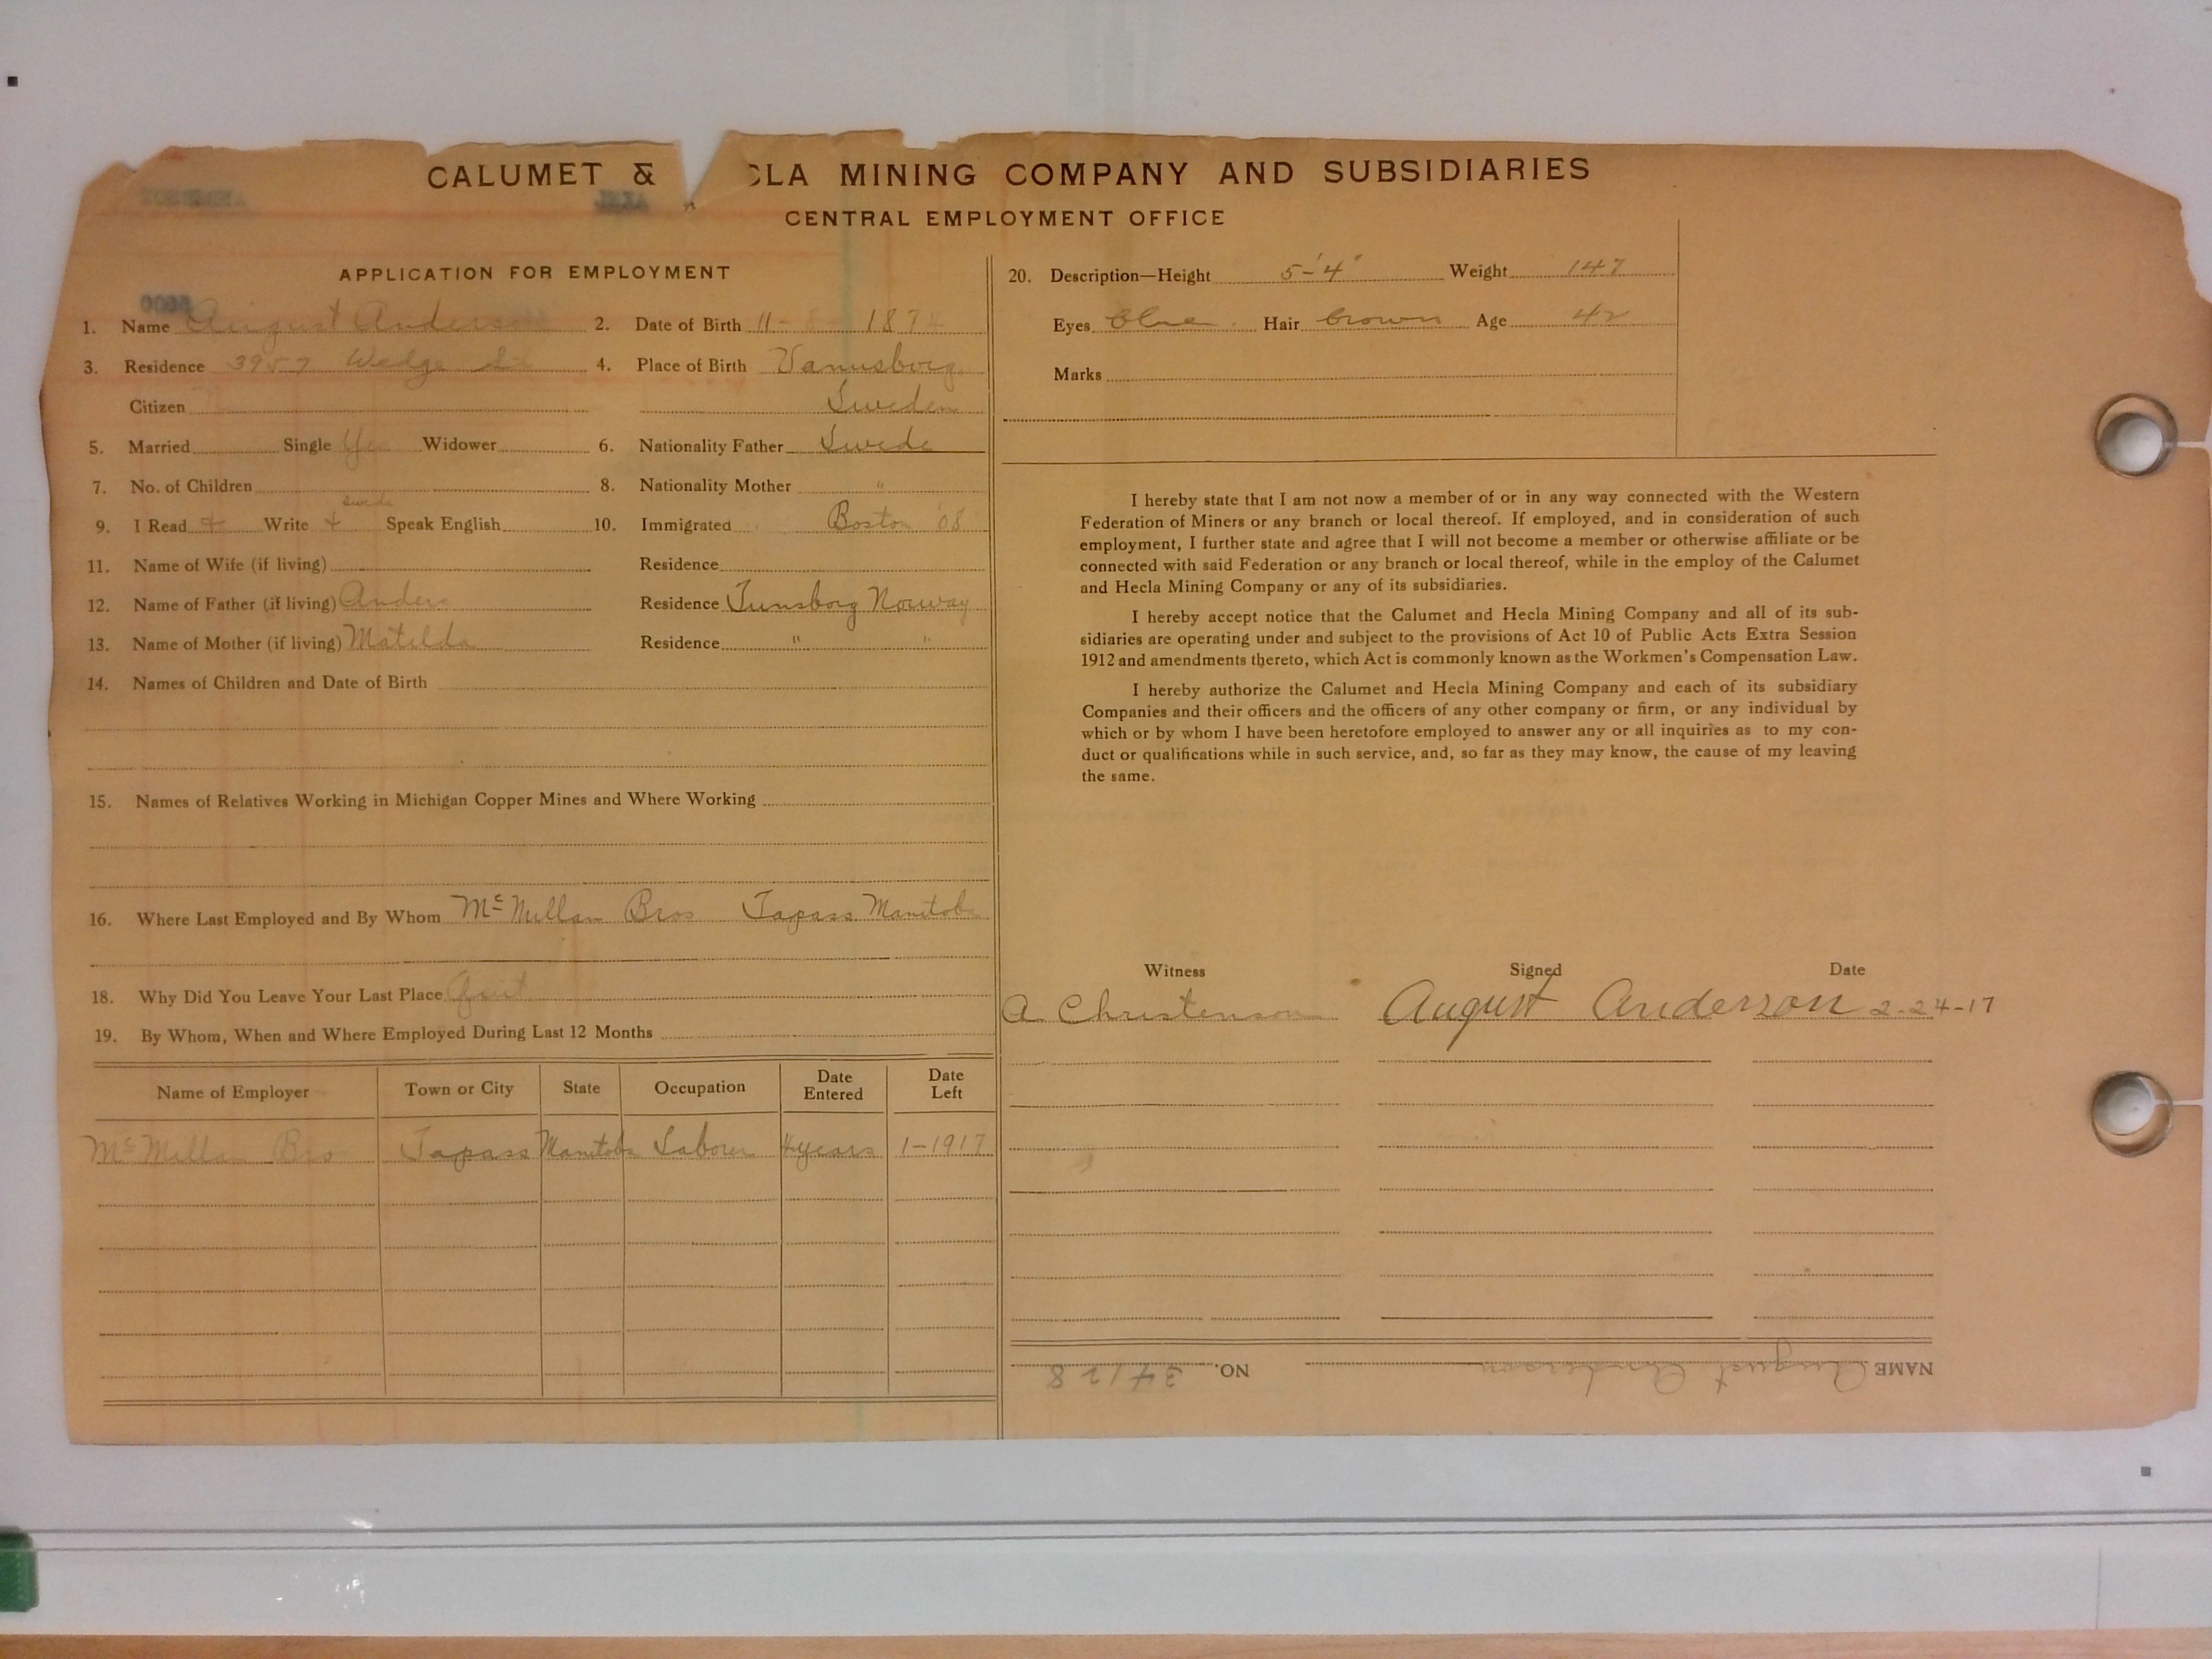 CALUMET & CLA MINING COMPANY AND SUBSIDIARIES
CENTRAL EMPLOYMENT OFFICE
APPLICATION FOR EMPLOYMENT
1. Name August Anderson 2. Date of Birth 11- 187
3. Residence 3957 Wedge 4. Place of Birth Vanusborg
Citizen Sweden
5. Married Single Yes Widower 6. Nationality Father Swede
7. No. of Children 8. Nationality Mother "
swede
9. I Read + Write + Speak English 10. Immigrated Boston '08
11. Name of Wife (if living) Residence
12. Name of Father (if living) Anders Residence Tunsborg Norway
13. Name of Mother (if living) Matilda Residence " "
14. Names of Children and Date of Birth
15. Names of Relatives Working in Michigan Copper Mines and Where Working
16. Where Last Employed and By Whom Mc Millan Bros Tapass Manitoba
18. Why Did You Leave Your Last Place Quit
19. By Whom, When and Where Employed During Last 12 Months
Name of Employer Town or City State Occupation Date Entered Date Left
Mc Millan Bros Tapass Manitoba Laborer 4 years 1-1917
20. Description—Height 5-'4" Weight 147
Eyes blue Hair brown Age 42
Marks
I hereby state that I am not now a member of or in any way connected with the Western
Federation of Miners or any branch or local thereof. If employed, and in consideration of such
employment, I further state and agree that I will not become a member or otherwise affiliate or be
connected with said Federation or any branch or local thereof, while in the employ of the Calumet
and Hecla Mining Company or any of its subsidiaries.
I hereby accept notice that the Calumet and Hecla Mining Company and all of its sub-
sidiaries are operating under and subject to the provisions of Act 10 of Public Acts Extra Session
1912 and amendments thereto, which Act is commonly known as the Workmen's Compensation Law.
I hereby authorize the Calumet and Hecla Mining Company and each of its subsidiary
Companies and their officers and the officers of any other company or firm, or any individual by
which or by whom I have been heretofore employed to answer any or all inquiries as to my con-
duct or qualifications while in such service, and, so far as they may know, the cause of my leaving
the same.
Witness Signed Date
A Christenson August Anderson 2-24-17
NAME August Anderson NO. 37128